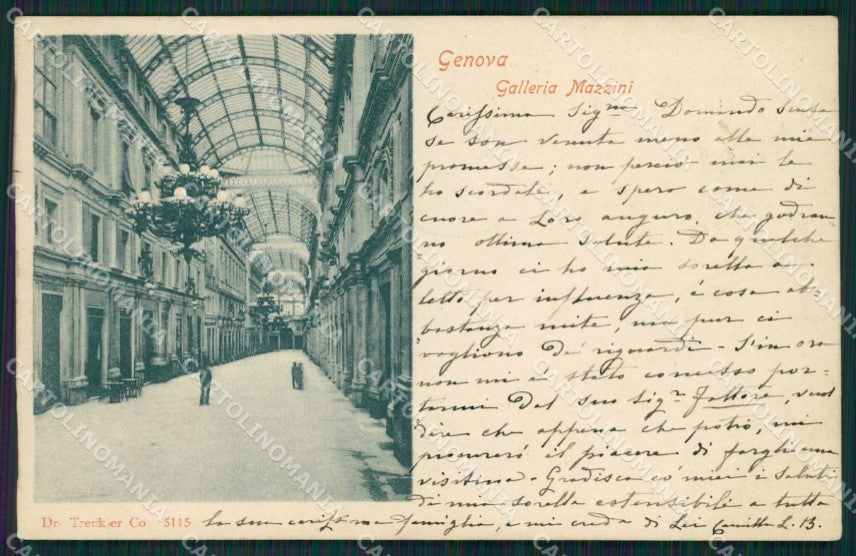 Genova
Galleria Mazzini
Carissima Sig.na Domando scusa
se son venuta meno alle mie
promesse; non perciò mai le
ho scordate, e spero come di
cuore a Loro auguro, che godran-
no ottima salute. Da qualche
giorno ci ho mia sorella a
letto per influenza, è cosa ab
bastanza mite, ma pur ci
vogliono de' riguardi - S'in ora
non mi è stato concesso por-
tarmi dal suo Sig.r Fattore, vuol
dire che appena che potrò, mi
procurerò il piacere di fargli una
visitina - Gradisca co' miei i saluti
di mia sorella estensibili a tutta
la sua carissima famiglia, e mi creda di Lei Camilla L. B.
Dr. Trenkler Co 5115
CARTOLINOMANIA